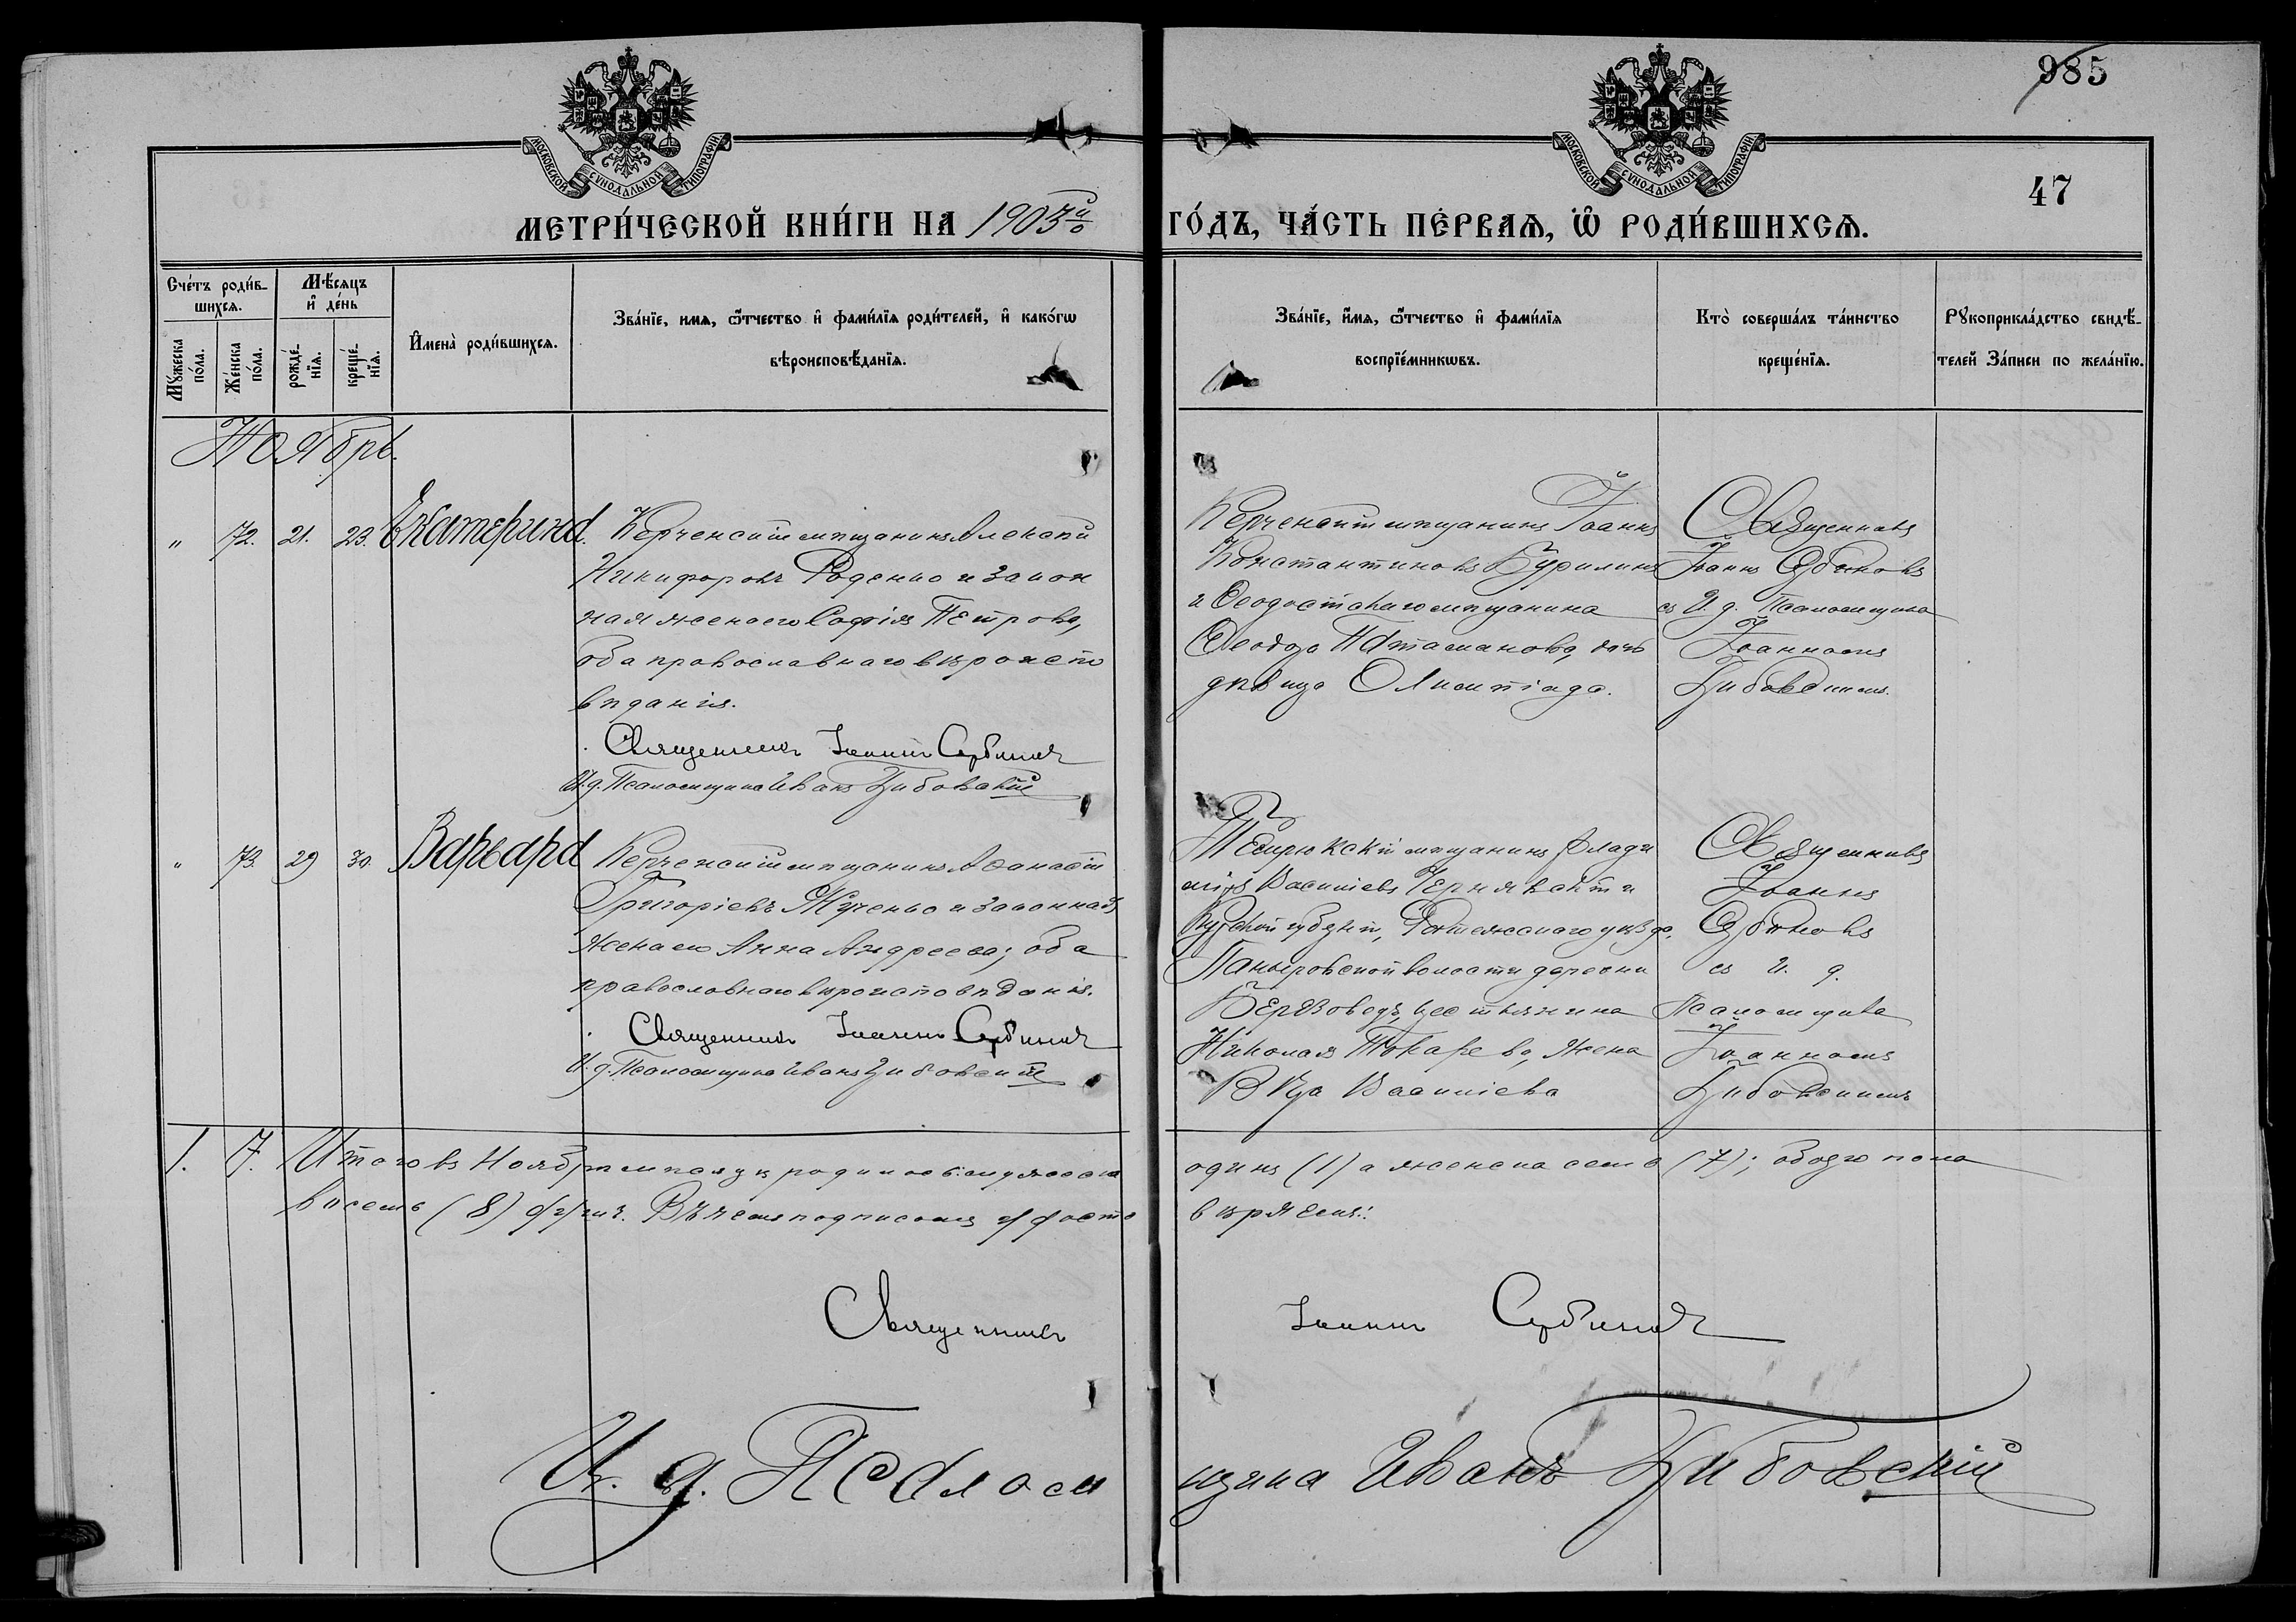 985
47
МОСКОВСКОЙ СѴНОДАЛЬНОЙ ТИПОГРАФІИ
МОСКОВСКОЙ СѴНОДАЛЬНОЙ ТИПОГРАФІИ
МЕТРИ́ЧЕСКОЙ КНИ́ГИ НА 1903й ГО́ДЪ, ЧА́СТЬ ПЕ́РВАѦ, Ѡ҆ РОДИ́ВШИХСѦ.
Сче́тъ роди́в-
шихсѧ.
Мꙋ́жеска по́ла.
Же́нска по́ла.
Мѣ́сѧцъ
и҆ де́нь
рожде́-
нїѧ.
креще́-
нїѧ.
И҆мена̀ роди́вшихсѧ.
Зва́нїе, имѧ, ѻ҆́тчество и҆ фами́лїѧ роди́телей, и҆ како́гѡ
вѣроисповѣ́данїѧ.
Зва́нїе, и҆́мѧ, ѻ҆́тчество и҆ фами́лїѧ
воспрїе́мникѡвъ.
Кто̀ соверша́лъ та́инство
креще́нїѧ.
Рꙋкоприкла́дство свидѣ́-
телей За́писи по жела́нїю.
Ноябрь.
" 72. 21. 23. Екатерина.
Керченскій мѣщанинъ Алексій
Никифоровъ Роденко и закон
ная жена его Софія Петрова,
оба православнаго вѣроиспо
вѣданія.
Священникъ Іоаннъ Сербиновъ
И. д. Псаломщика Иванъ Цибовскій
Керченскій мѣщанинъ Іоаннъ
Константиновъ Бурилинъ
и Ѳеодосійскаго мѣщанина
Ѳеодора Паталанова, дочь
дѣвица Олимпіада.
Священникъ
Іоаннъ Сербиновъ
съ И. д. Псаломщика
Іоанномъ
Цибовскимъ.
" 73. 29 30. Варвара
Керченскій мѣщанинъ Аѳанасій
Григоріевъ Жученко и законная
жена его Анна Андреева; оба
православнаго вѣроисповѣданія.
Священникъ Іоаннъ Сербиновъ
И. д. Псаломщика Иванъ Цибовскій
Темрюкскій мѣщанинъ Влади
міръ Василіевъ Чернявскій и
Курской губерніи, Фатежскаго уѣзда,
волости деревни
крестьянина
Николая Токарева, жена
Вѣра Василіева
Священникъ
Іоаннъ
Сербиновъ
съ И. д.
Псаломщика
Іоанномъ
Цибовскимъ
1. 7. Итого въ Ноябрѣ мѣсяцѣ родилось: мужеска одинъ (1) а женска семь (7); обоего пола
восемь (8) душъ. Въ чемъ подписомъ и свидѣтельствуемъ
Священникъ Іоаннъ Сербиновъ
И. д. Псаломщика Иванъ Цибовскій